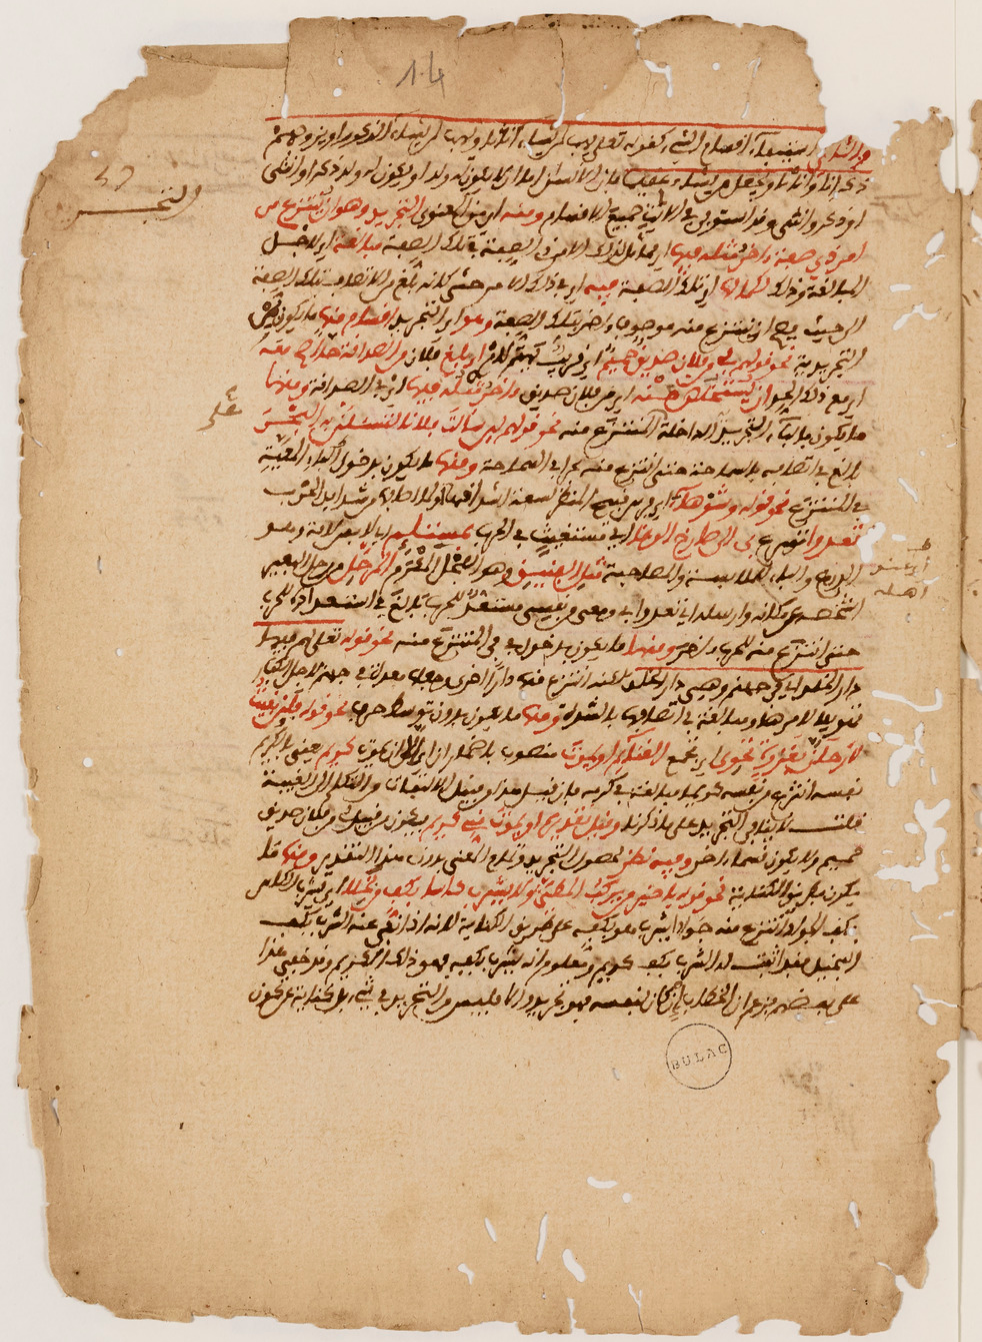 1.4
والثاني استيفاء أقسام الشيء كقوله تعلى يهب لمن يشاء اناثا ويهب لمن يشاء الذكور او يزوجهم
ذكرانا واناثا ويجعل من يشاء عقيما فان الانسان اما ان لا يكون له ولد او يكون له ولد ذكر او انثى
او ذكر وانثى وقد استوفى في الاية جميع الاقسام ومنه اي من المعنوي التجريد وهو ان ينتزع من
امر ذي صفة ءاخر مثله فيها اي مماثل لذلك الامر في الصفة في تلك الصفة مبالغة اي لاجل
المبالغة وذلك لكمالها اي تلك الصفة فيه اي في ذلك الامر حتى كانه بلغ من الاتصاف بتلك الصفة
الى حيث يصح ان ينتزع منه موصوف ءاخر بتلك الصفة وهو اي التجريد اقسام منها ما يكون بمن
التجريدية نحو قولهم لي من فلان صديق حميم اي قريب يهتم لامره اي بلغ فلان من الصداقة حدا صح معه
اي مع ذلك الحد ان يستخلص منه اي من فلان صديق ءاخر مثله فيها اي في الصداقة ومنها
ما يكون بالباء التجريدية الداخلة على المنتزع منه نحو قولهم لئن سألت فلانا لتسئلن به البحر
بالغ في اتصافه بالسماحة حتى انتزع منه بحرا في السماحة ومنها ما يكون بدخول باء المعية
في المنتزع نحو قوله وشوهاء اي فرس قبيح المنظر لسعة اشداقها او لما اصابها من شدايد الحرب
تعدو اي تسرع بي الى صارخ الوغا اي مستغيث في الحرب بمستلئم اي لابس لامة وهو
الدرع والباء للملابسة والمصاحبة مثل الفنيق وهو الفحل المكرم المرحل من رحل البعير
اشخصه من مكانه وارسله اي تعدو بي ومعي من نفسي مستعد للحرب بالغ في استعداده للحرب
حتى انتزع منه للحرب ءاخر ومنها ما يكون بدخول في في المنتزع منه نحو قوله تعلى لهم فيها
دار الخلد اي في جهنم وهي دار الخلد لكنه انتزع منها دارا اخرى وجعلها معدة في جهنم لاجل الكفار
تهويلا لامرها ومبالغة في اتصافها بالشدة ومنها ما يكون بدون توسط حرف نحو قوله فلئن بقيت
لارحلن بغزوة تحوي اي تجمع الغنائم او يموت منصوب باضمار ان اي الا ان يموت كريم يعني بالكريم
نفسه انتزع من نفسه كريما مبالغة في كرمه فان قيل هذا من قبيل الالتفات من التكلم الى الغيبة
قلت لا ينافي التجريد على ما ذكرنا وقيل تقديره او يموت مني كريم فيكون من قبيل لي من فلان صديق
حميم ولا يكون قسما ءاخر وفيه نظر لحصول التجريد وتمام المعنى بدون هذا التقدير ومنها ما
يكون بطريق الكناية نحو قوله يا خير من يركب المطي ولا يشرب كاسا بكف من بخلا اي يشرب الكاس
بكف الجواد انتزع منه جوادا يشرب هو بكفه على طريق الكناية لانه اذا نفى عنه الشرب بكف
البخيل فقد اثبت له الشرب بكف كريم ومعلوم انه يشرب بكفه فهو ذلك الكريم وقد خفي هذا
على بعضهم فزعم ان الخطاب ان كان لنفسه فهو تجريد والا فليس من التجريد في شيء بل كناية عن كون
التجريد
BULAC